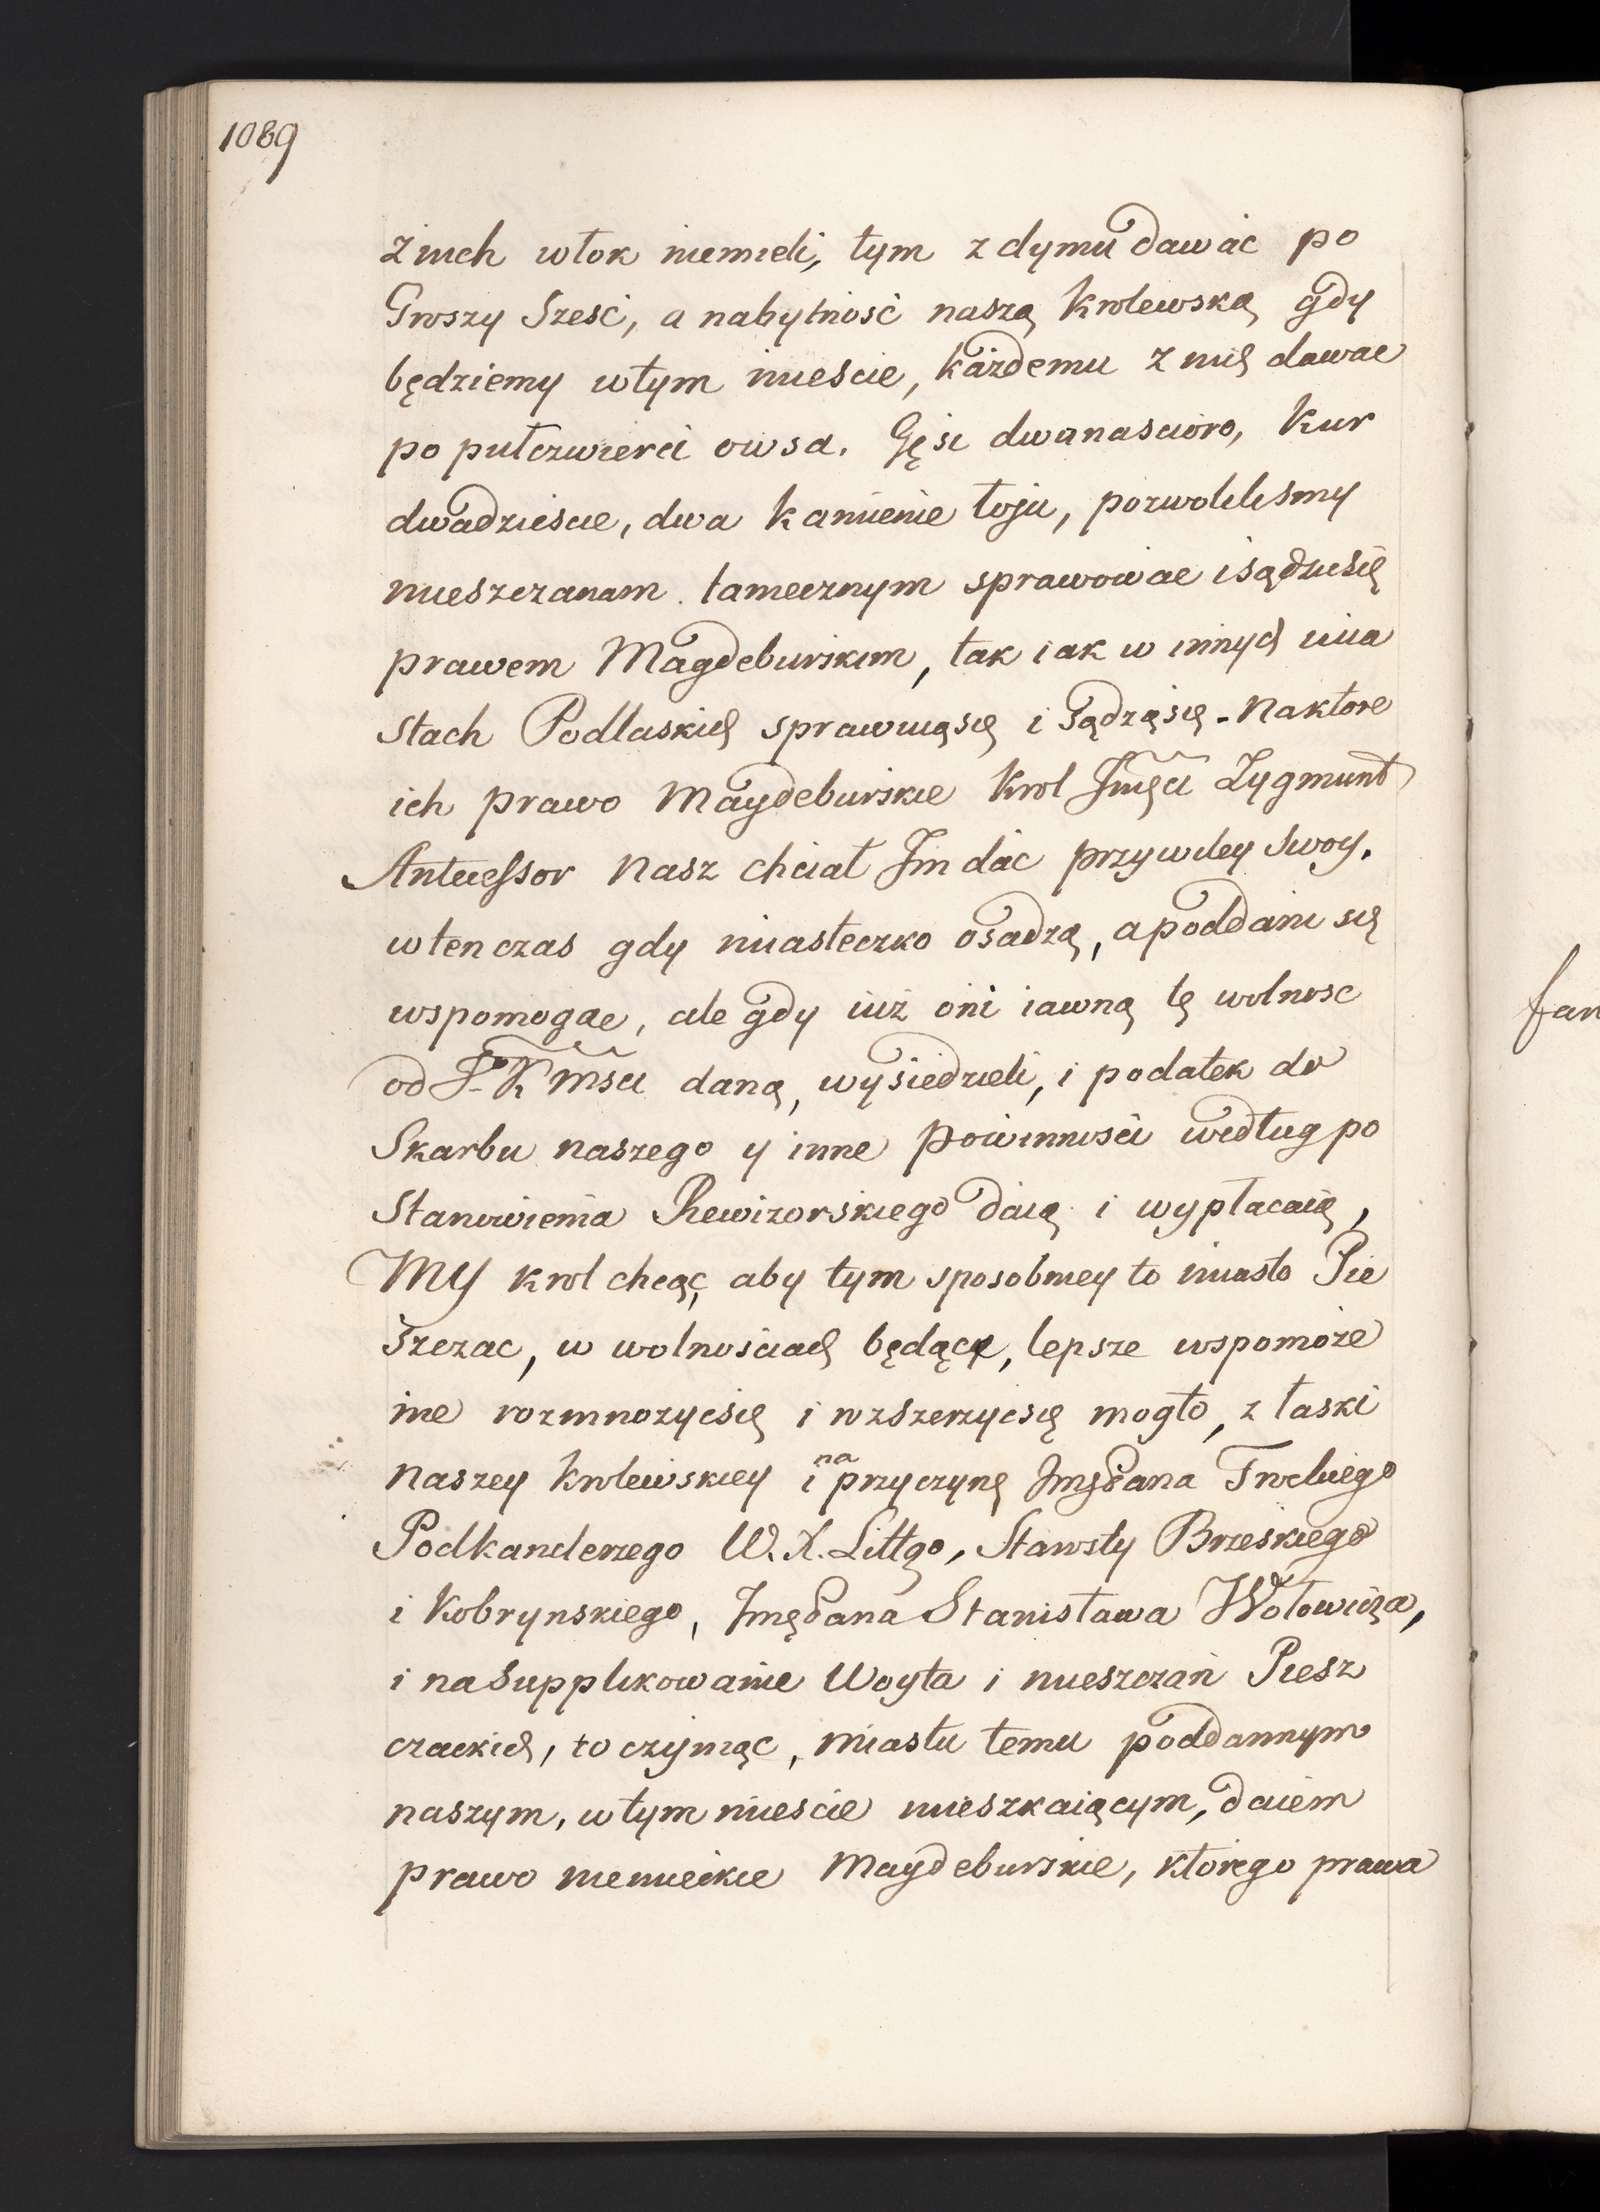 1089
z nich włok niemieli, tym z dymu dawać po
Groszy Sześć, a nabytność naszą Krolewską gdy
będziemy wtym mieście, każdemu z nich dawac
po pułczwierci owsa. Gęsi dwanascioro, Kur
dwadzieście, dwa kamienie łoju, pozwoliliśmy
mieszczanam tamecznym sprawowac i sądzićsię
prawem Magdeburskim, tak iak w innych mia
stach Podlaskich sprawuiąsię i Sądząsię. Naktore
ich prawo Maydeburskie Krol Jmści Zygmunt
Antecessor Nasz chciał Jm dać przywiley Swoy.
wten czas gdy miasteczko osadzą, apoddani się
wspomogąc, ale gdy iuż oni iawną tę wolnosc
od J. K Mści daną, wysiedzieli, i podatek do
Skarbu naszego y inne Powinności według po
Stanowienia Rewizorskiego daią i wypłacaią,
MY Krol chcąc, aby tym sposobniey to miasto Pie
szczac, w wolnościach będące, lepsze wspomoże
nie rozmnożycsię i rozszerzycsię mogło, z łaski
Naszey Krolewskiey i na przyczynę Jmć Pana Trockiego
Podkanclerzego W. X. Littgo, Starosty Brzeskiego
i Kobrynskiego, Jmć Pana Stanisława Wołowicza,
i na Supplikowanie Woyta i mieszczań Piesz
czackich, to czyniąc, miastu temu poddannym
naszym, wtym mieście mieszkaiącym, daiem
prawo niemieckie Maydeburskie, ktorego prawa
fan